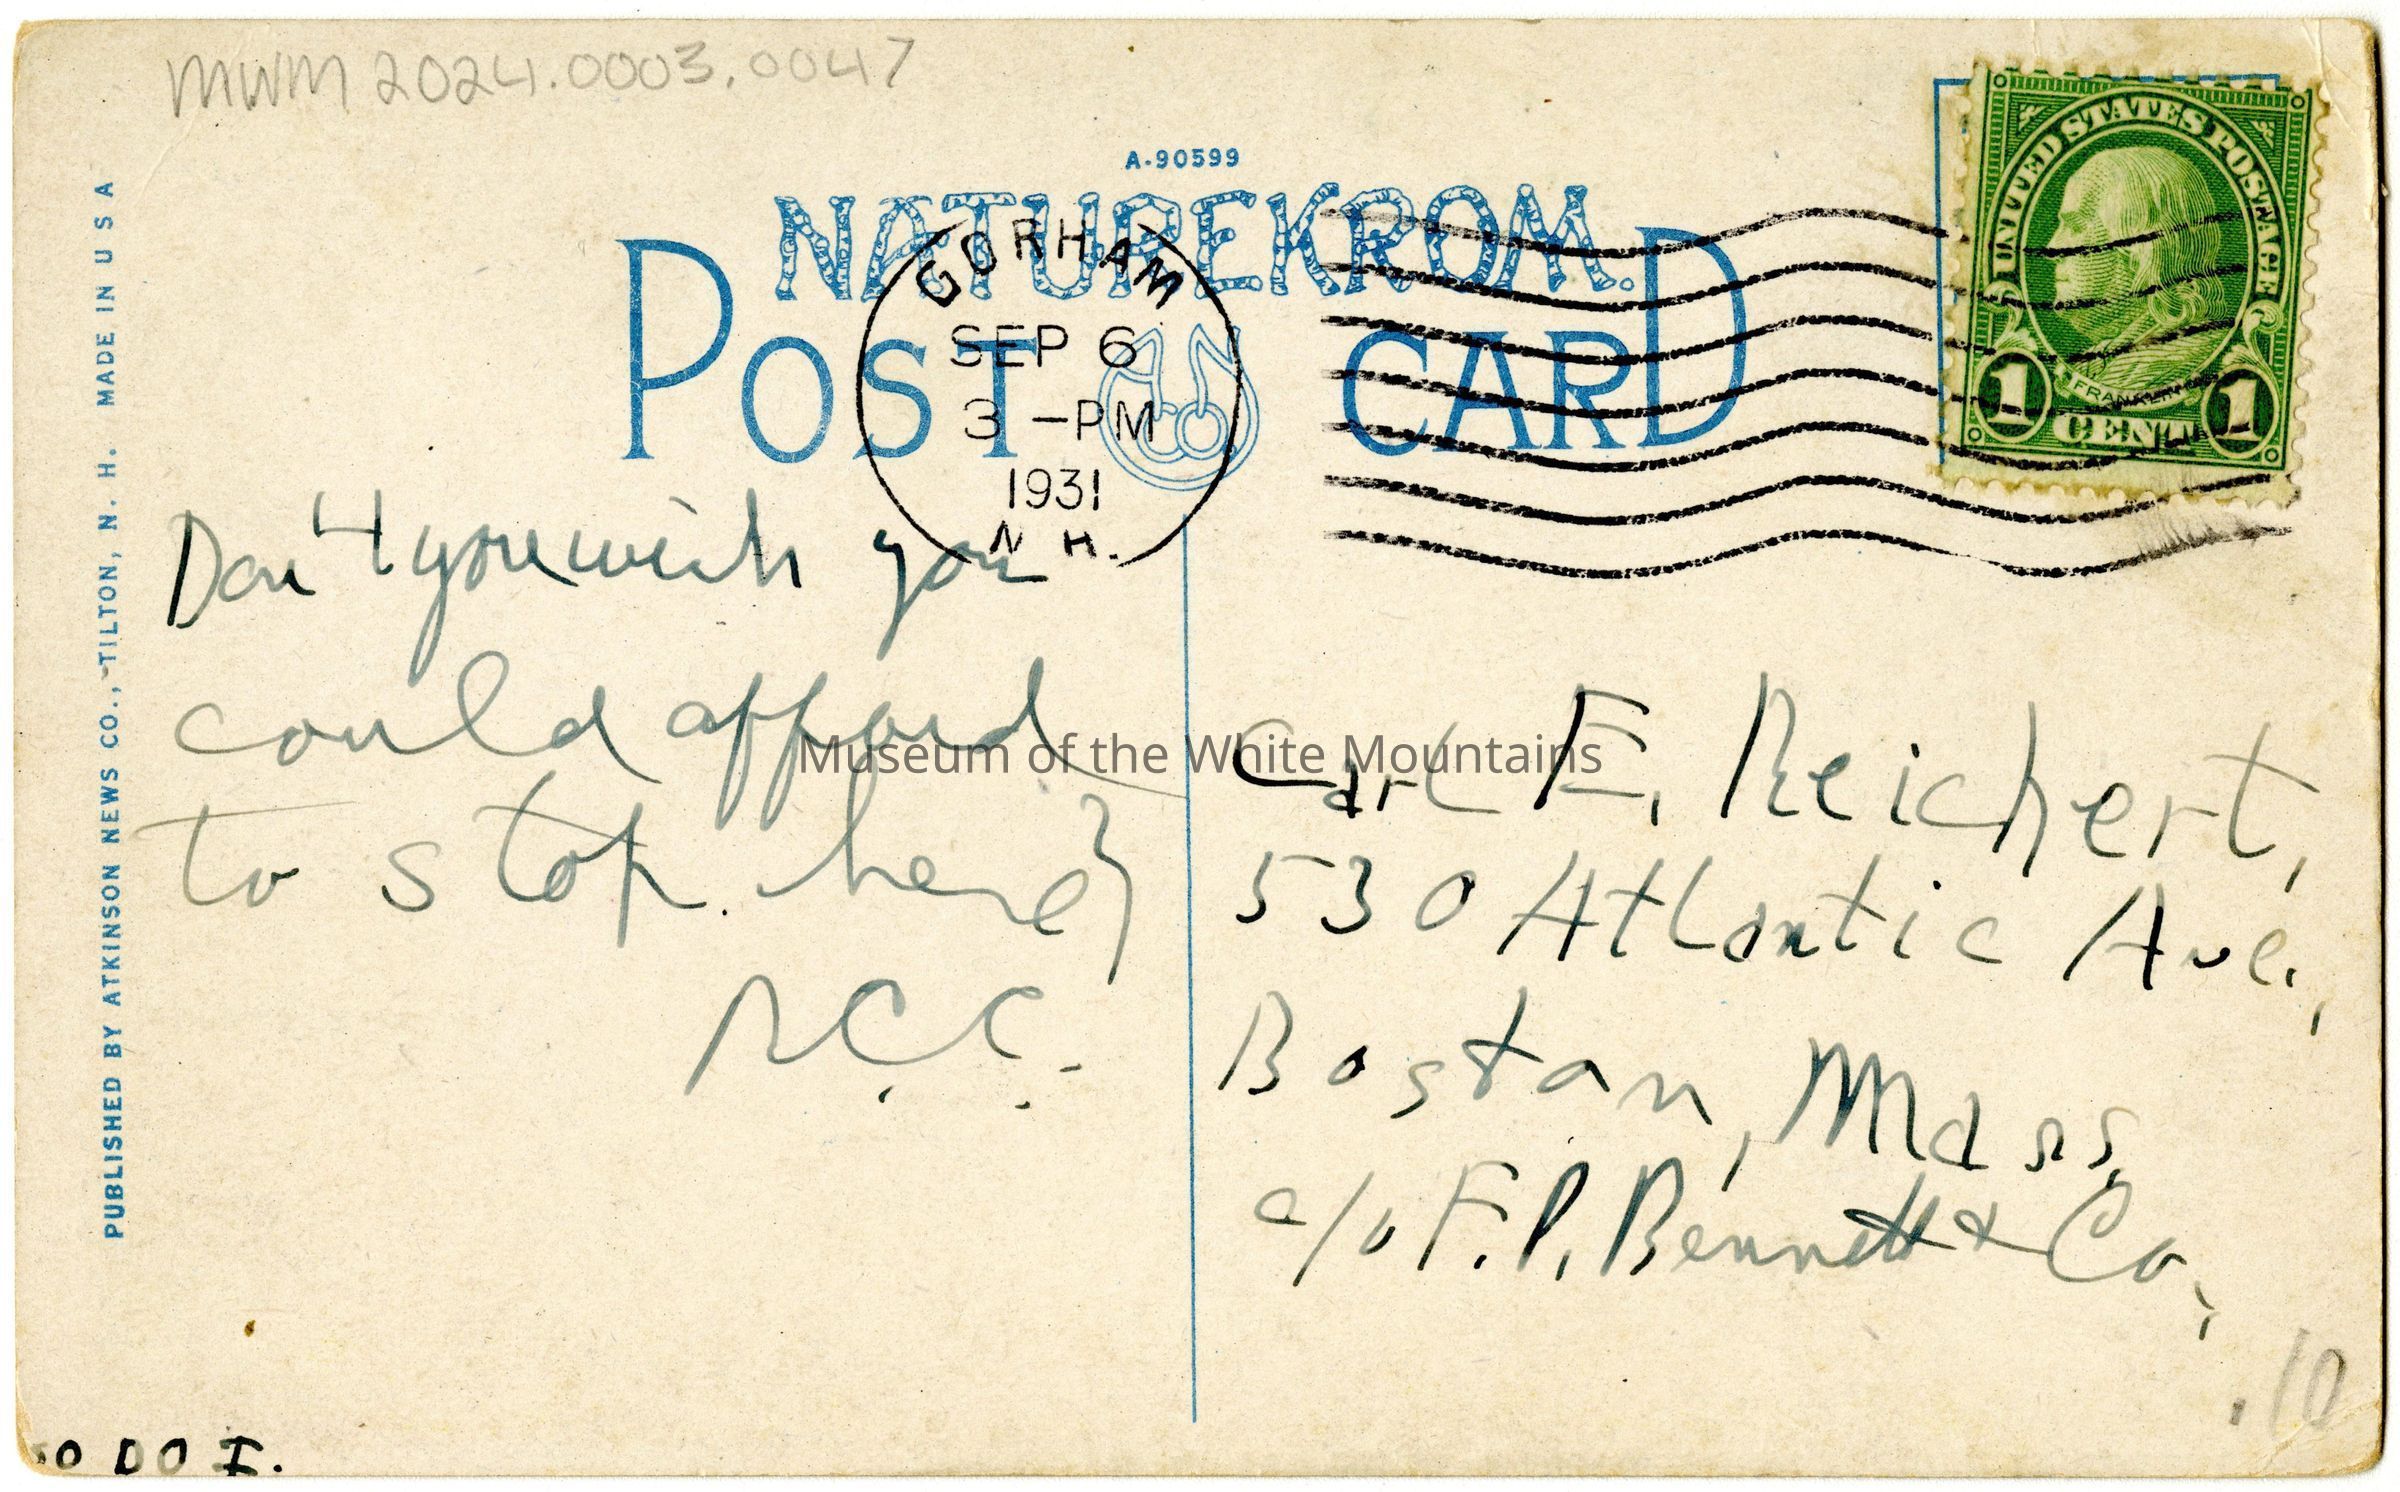 MWM 2024.0003.0047
A-90599
NATUREKROM.
POST CARD
GORHAM
SEP 6
3 -PM
1931
N H.
UNITED STATES POSTAGE
FRANKLIN
1 CENT 1
PUBLISHED BY ATKINSON NEWS CO., TILTON, N. H. MADE IN U S A
Don't you wish you
could afford
to stop here?
Museum of the White Mountains
Carl E. Reichert,
530 Atlantic Ave.,
Boston, Mass,
c/o F. P. Bennett & Co,
.10
SO DO I.